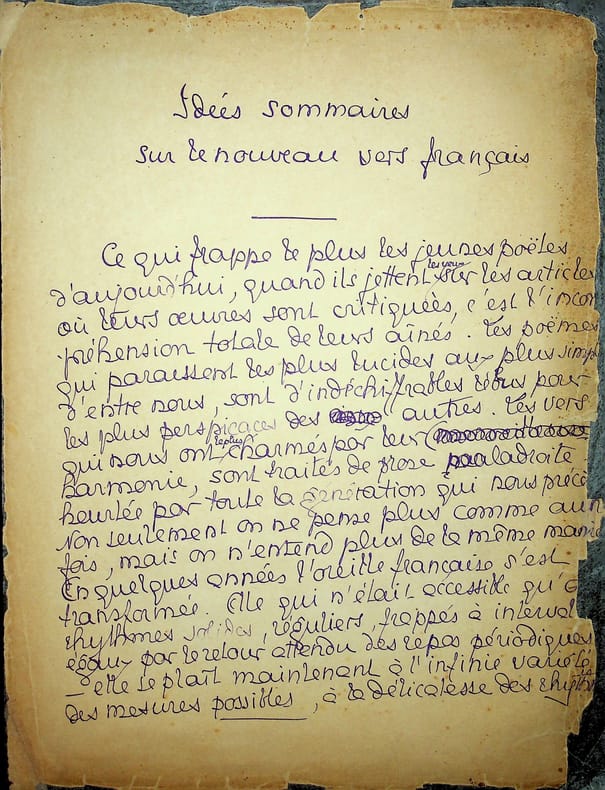 Idées sommaires
sur le nouveau vers français
Ce qui frappe le plus les jeunes poëtes
d'aujourd'hui, quand ils jettent les yeux sur les articles
où leurs œuvres sont critiquées, c'est l'incom
préhension totale de leurs aînés. Les poëmes
qui paraissent les plus lucides aux plus simpl
d'entre nous, sont d'indéchiffrables rébus pour
les plus perspicaces des autres. Les vers
qui nous ont le plus charmés par leur
harmonie, sont traités de prose maladroite
heurtée par toute la génération qui nous précè
Non seulement on ne pense plus comme au
fois, mais on n'entend plus de la même mani
En quelques années l'oreille française s'est
transformée. Elle qui n'était accessible qu'à
rhythmes solides, réguliers, frappés à interval
égaux par le retour attendu des repos périodiques
– elle se plaît maintenant à l'infinie variété
des mesures possibles, à la délicatesse des rhyth